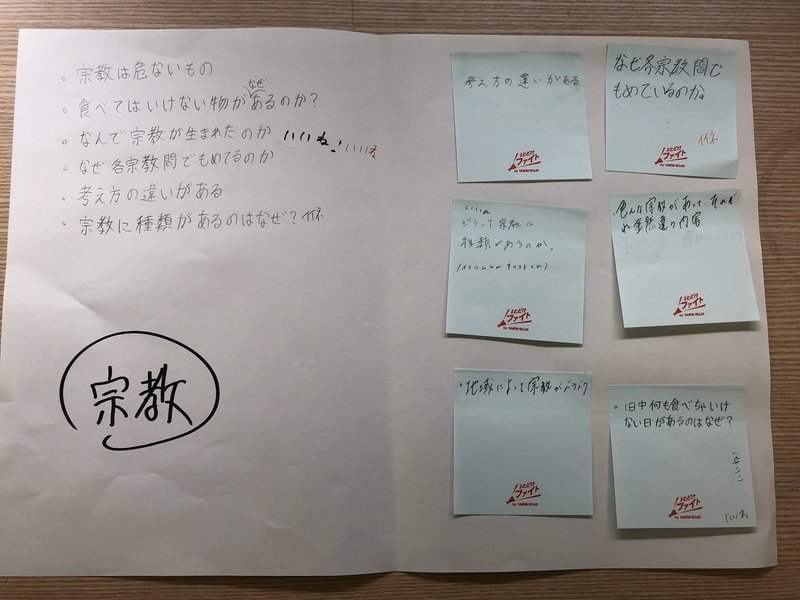 。宗教は危ないもの
なぜ
。食べてはいけない物があるのか?
。なんで宗教が生まれたのか いいね! いいね
。なぜ各宗教間でもめてるのか
。考え方の違いがある
。宗教に種類があるのはなぜ? イイネ
宗教
考え方の違いがある
ファイト
なぜ各宗教間で
もめているのか。
イイネ
ファイト
いいね
どうして宗教に
種類があるのか。
(イスラムとかキリストとか)
ファイト
色んな宗教があって、それぞ
れ全然違う内容
ファイト
・地域によって宗教がバラバラ
ファイト
。日中何も食べちゃいけ
ない日があるのはなぜ?
いいね
ファイト